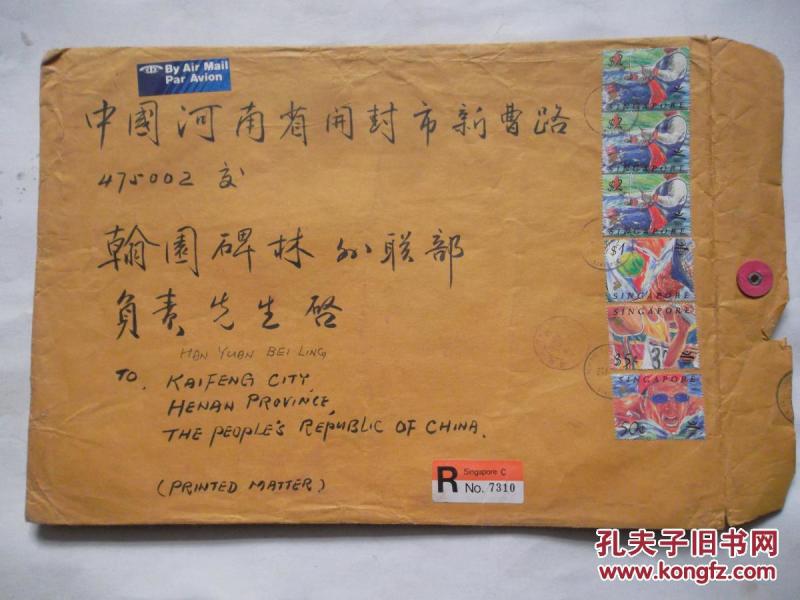 By Air Mail
Par Avion
中國河南省開封市新曹路
475002 交
翰園碑林外联部
負責先生啓
HAN YUAN BEI LING
TO. KAIFENG CITY
HENAN PROVINCE,
THE PEOPLE'S REPUBLIC OF CHINA.
(PRINTED MATTER)
$2
SINGAPORE
$2
SINGAPORE
$2
SINGAPORE
$1
SINGAPORE
SINGAPORE
35c
SINGAPORE
50c
R
Singapore C
No. 7310
孔夫子旧书网
www.kongfz.com